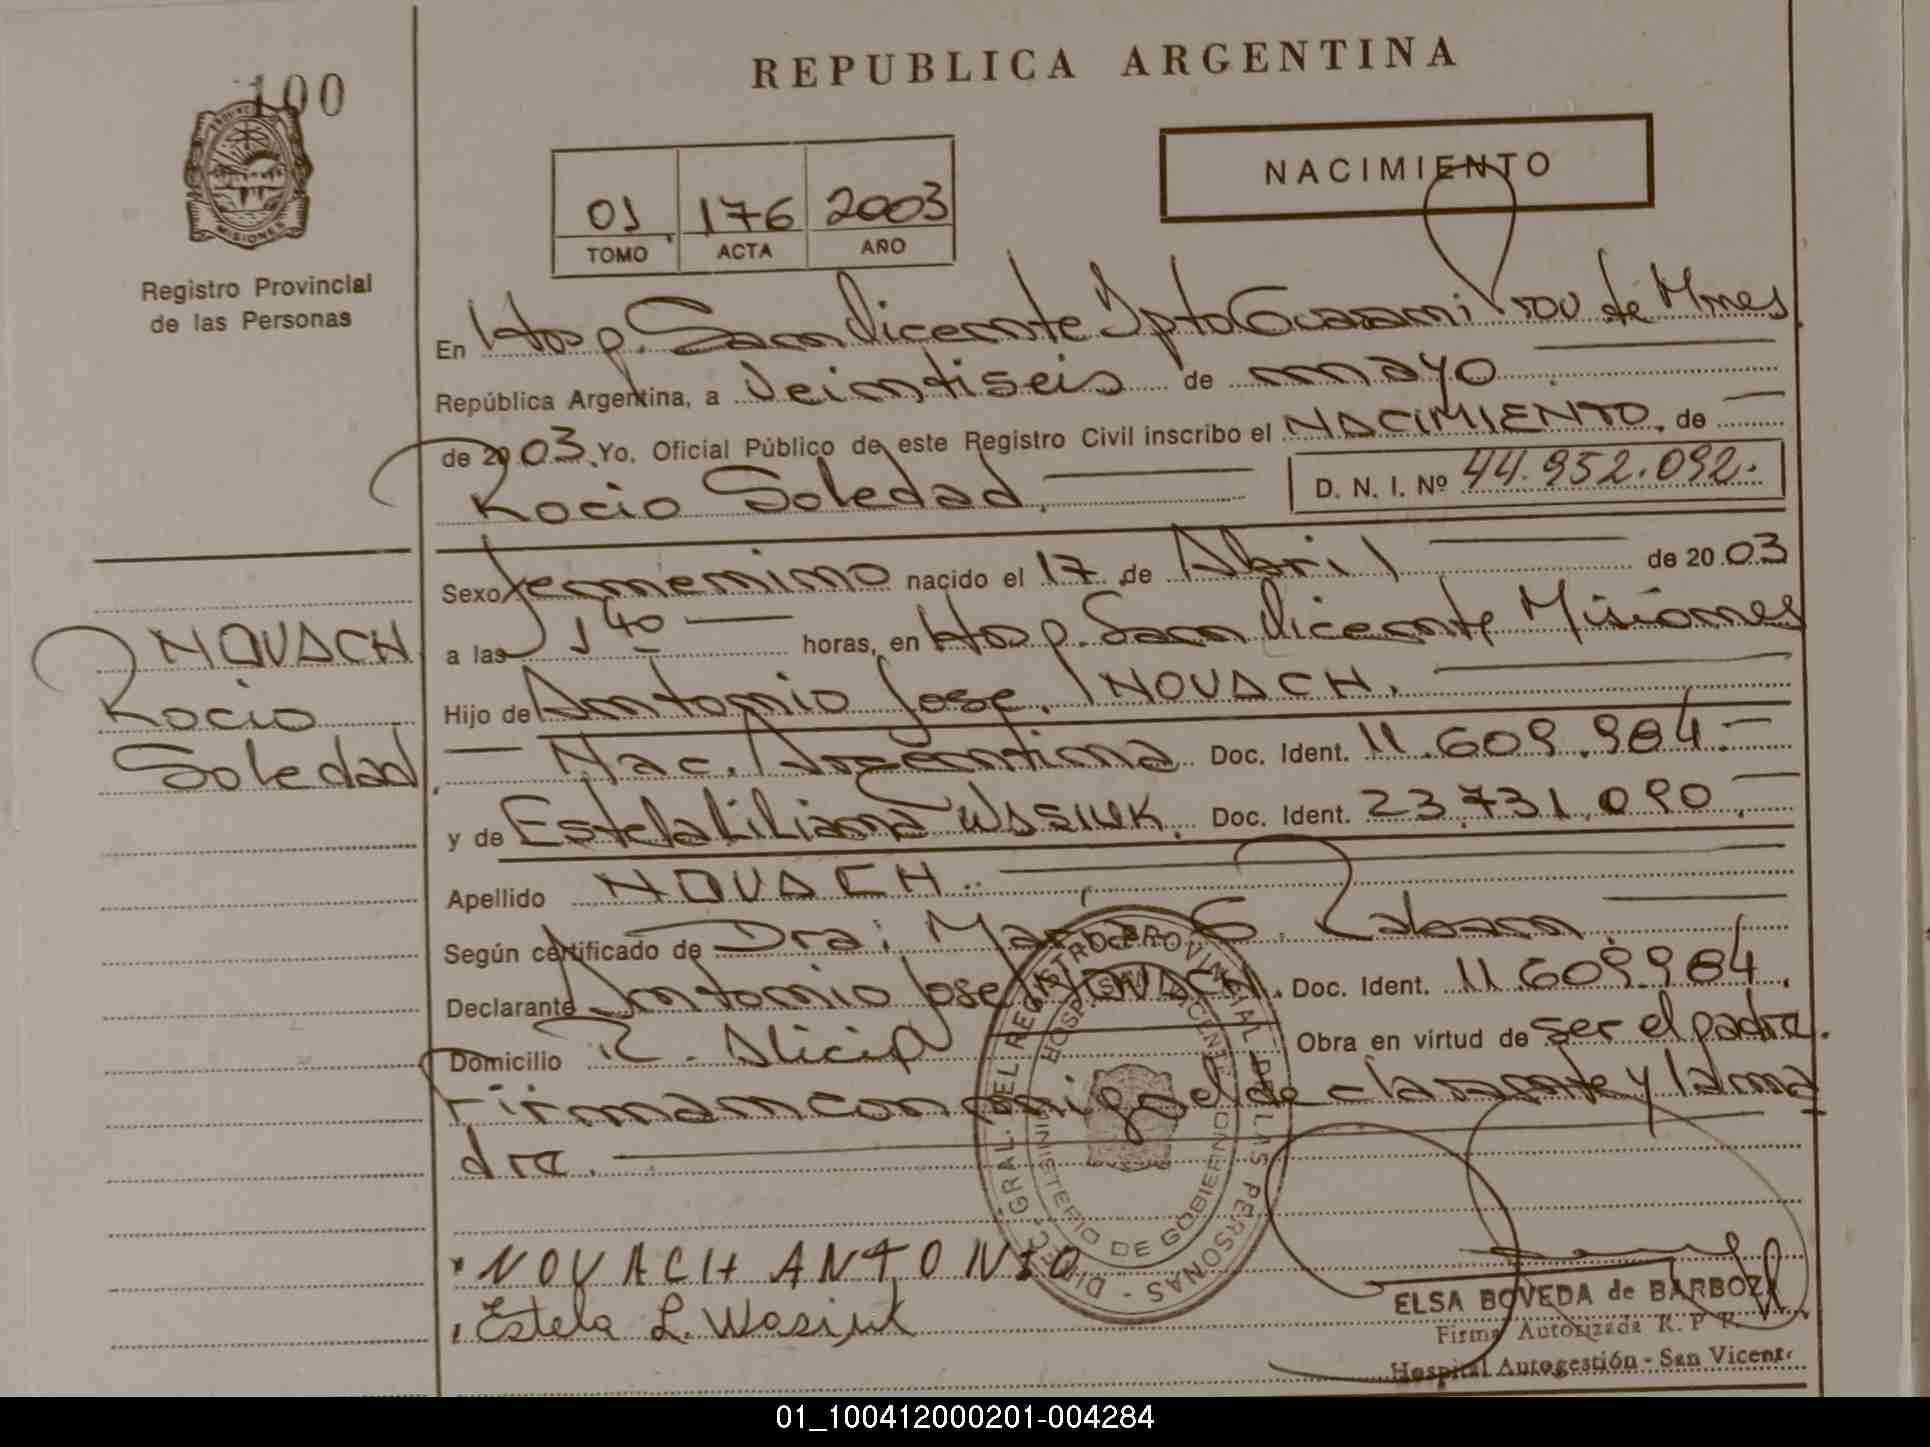 REPUBLICA ARGENTINA
100
NACIMIENTO
01 176 2003
TOMO ACTA AÑO
MISIONES
Registro Provincial
de las Personas
En Hosp. San Vicente Dpto Guarani Prov de Mnes
República Argentina, a Veintiseis de mayo
de 2003. Yo, Oficial Público de este Registro Civil inscribo el NACIMIENTO, de
Rocio Soledad. D. N. I. Nº 44.952.092.
Sexo femenino nacido el 17 de Abril de 2003
a las 1 40 horas, en Hosp. San Vicente Misiones
Hijo de Antonio Jose NOVACH.
Nac. Argentina Doc. Ident. 11.609.984.
y de Estela Liliana WASIUK. Doc. Ident. 23.731.090.
Apellido NOVACH.
Según certificado de Dra: Maria G.
Declarante Antonio Jose NOVACH. Doc. Ident. 11.609.984.
Domicilio P. Alicia Obra en virtud de ser el padre.
Firman conmigo el declarante y la ma
dre.
NOVACH ANTONIO
Estela L. Wasiuk
NOVACH
Rocio
Soledad.
DIREC. GRAL. DEL REGISTRO PROVINCIAL DE LAS PERSONAS -
HOSPITAL SAN VICENTE
MINISTERIO DE GOBIERNO
ELSA BOVEDA de BARBOZA
Firma Autorizada R. P. P.
Hospital Autogestión - San Vicente
01_100412000201-004284